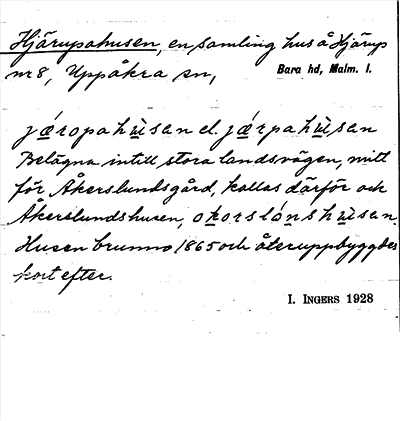 Hjärupahusen, en samling hus å Hjärup
nr 8, Uppåkra sn, Bara hd, Malm. l.
járopahùsan el. járpahùsan
Belägna intill stora landsvägen, mitt
för Åkerslundsgård, kallas därför och
Åkerslundshusen, okorslónshùsan.
Husen brunno 1865 och återuppbyggdes
kort efter.
I. INGERS 1928